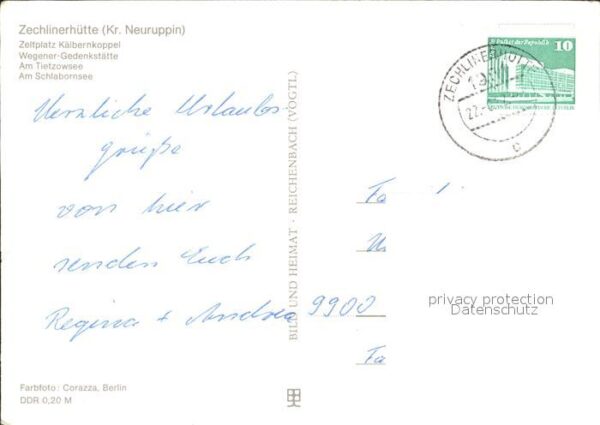 Zechlinerhütte (Kr. Neuruppin)
Zeltplatz Kälbernkoppel
Wegener-Gedenkstätte
Am Tietzowsee
Am Schlabornsee
Palast der Republik 10
ZECHLINERHÜTTE
22.
Herzliche Urlaubs-
grüße
von hier
senden Euch
Regina + Andrea
BILD UND HEIMAT · REICHENBACH (VOGTL)
Fa
9900
Fa
privacy protection
Datenschutz
Farbfoto: Corazza, Berlin
DDR 0,20 M